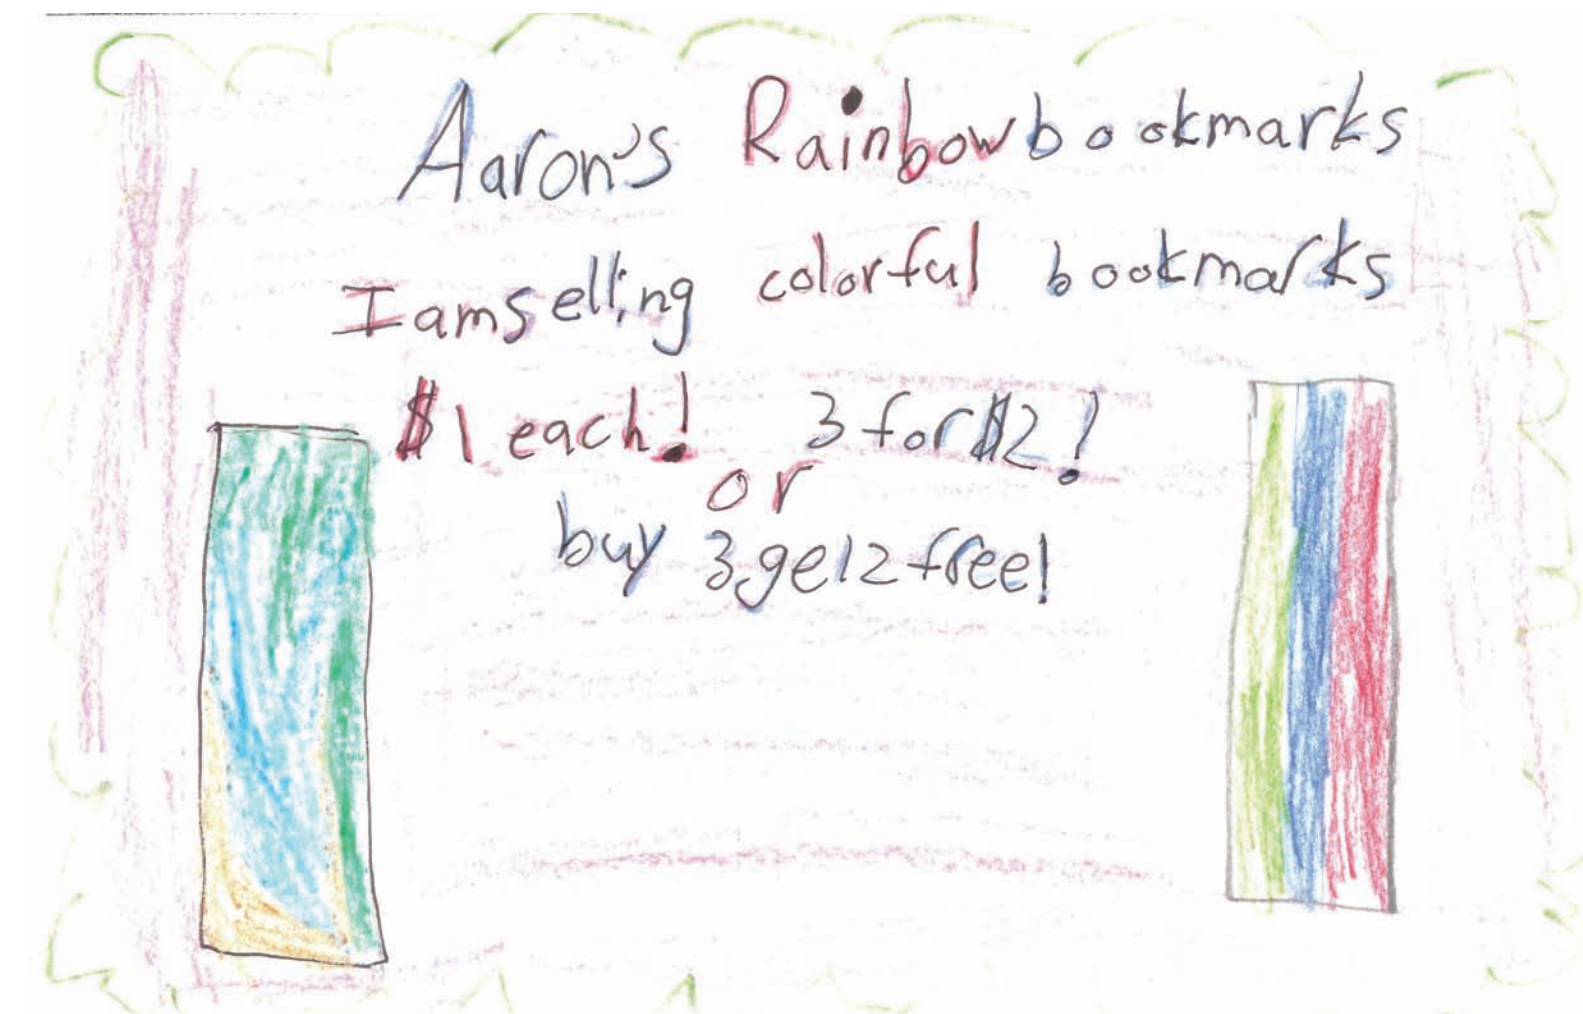 Aaron's Rainbow bookmarks
I am selling colorful bookmarks
$1 each! 3 for $2!
or
buy 3 get 2 free!